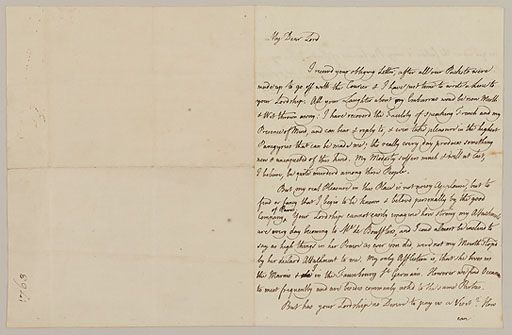 My Dear Lord
I receivd your obliging Letter, after all our Packets were
made up to go off with the Courier & I have just time to write a line to
your Lordship: All your Laughter about my Embarras woud be now Mirth
& Wit thrown away: I have recoverd the Faculty of speaking French and my
Presence of Mind, and can hear & reply to, & even take pleasure in the highest
Panegyrics that can be made me; tho really every day produces something
new & unexpected of this kind. My Modesty suffers much & will at last,
I believe, be quite murderd among these People.
But my real Pleasure in this Place is not giving Applause, but to
find or fancy that I begin to be known & belovd personally by the good
Company of Paris. Your Lordship cannot easily imagine how strong my Attachments
are every day becoming to Me de Boufflers, and I woud almost be inclind to
say as high things in her Praise as ever you did, were not my Mouth stopd
by her declard Attachment to me. My only Affliction is, that she lives in
the Marais & I in the Fauxbourg St Germain. However we find Occasion
to meet frequently and are besides commonly askd to the same Parties.
But has your Lordship no Desire to pay us a Visit? How
can